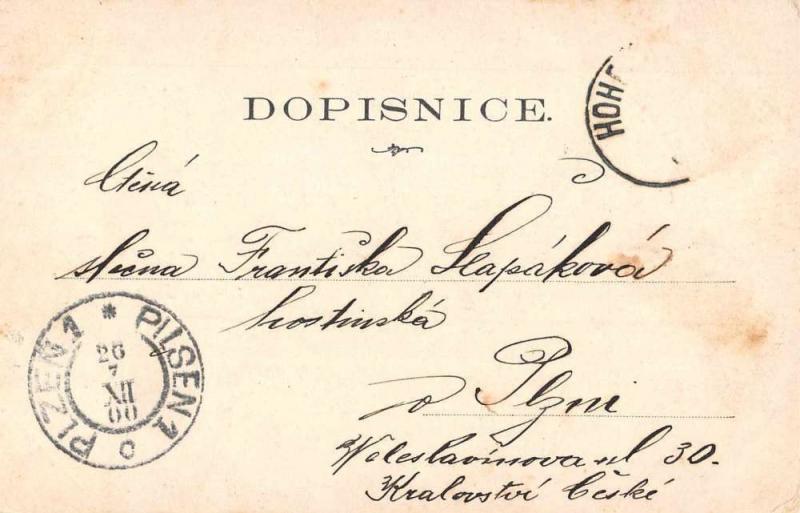 DOPISNICE.
HOHE
Ctěná
slečna Františka Slapáková
hostinská
v Plzni
Veleslavínova ul 30.
Kralovství České
PLZEŇ 1 * PILSEN 1
XII
00